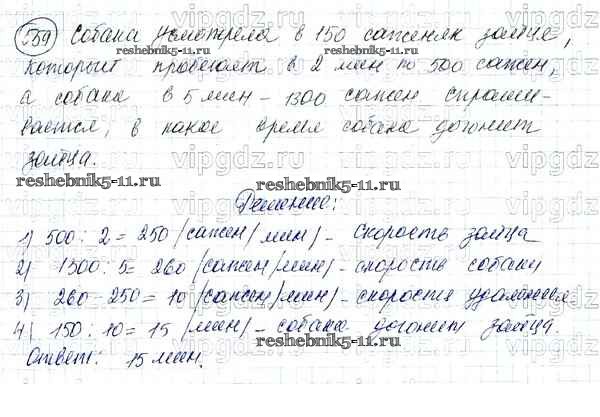 759 Собака усмотрела в 150 саженях зайца,
который пробегает в 2 мин по 500 сажен,
а собака в 5 мин – 1300 сажен. Спраши-
вается, в какое время собака догонит
зайца.
Решение:
1) 500 : 2 = 250 (сажен/мин) – скорость зайца
2) 1300 : 5 = 260 (сажен/мин) – скорость собаки
3) 260 - 250 = 10 (сажен/мин) – скорость удаления
4) 150 : 10 = 15 (мин) – собака догонит зайца.
Ответ: 15 мин.
vipgdz.ru
reshebnik5-11.ru